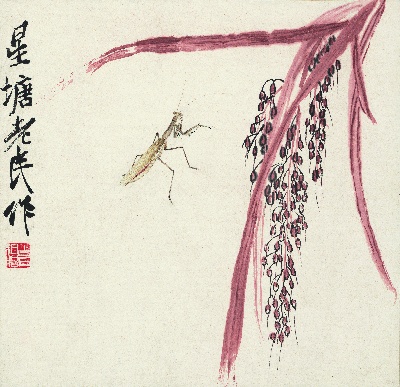 星塘老民作